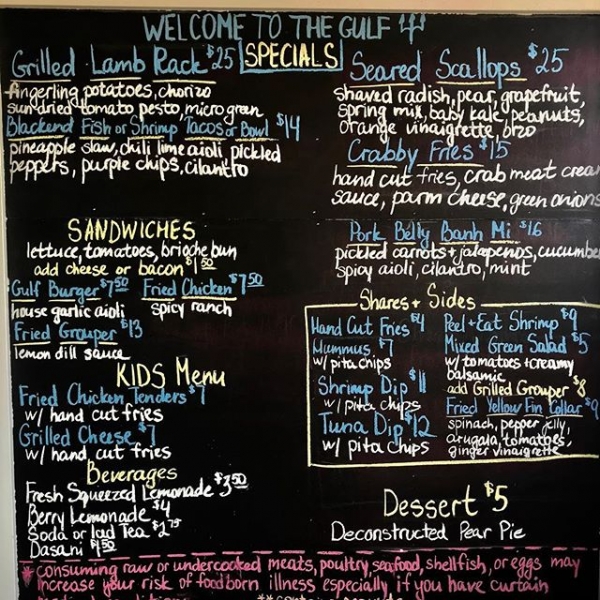 WELCOME TO THE GULF
SPECIALS
Grilled Lamb Rack $25
fingerling potatoes, chorizo
sundried tomato pesto, micro green
Blackend Fish or Shrimp Tacos or Bowl $14
pineapple slaw, chili lime aioli, pickled
peppers, purple chips, cilantro
Seared Scallops $25
shaved radish, pear, grapefruit,
spring mix, baby kale, peanuts,
orange vinaigrette, orzo
Crabby Fries $15
hand cut fries, crab meat cream
sauce, parm cheese, green onions
SANDWICHES
lettuce, tomatoes, brioche bun
add cheese or bacon $1.50
Gulf Burger $7.50 Fried Chicken $7.50
house garlic aioli spicy ranch
Fried Grouper $13
lemon dill sauce
Pork Belly Banh Mi $16
pickled carrots + jalapenos, cucumbe
spicy aioli, cilantro, mint
KIDS Menu
Fried Chicken Tenders $7
w/ hand cut fries
Grilled Cheese $7
w/ hand cut fries
Beverages
Fresh Squeezed Lemonade $3.50
Berry Lemonade $4
Soda or Iced Tea $2.75
Dasani $1.50
Shares + Sides
Hand Cut Fries $4
Hummus $7
w/ pita chips
Shrimp Dip $11
w/ pita chips
Tuna Dip $12
w/ pita chips
Peel + Eat Shrimp $9
Mixed Green Salad $5
w/ tomatoes + creamy
balsamic
add Grilled Grouper $8
Fried Yellow Fin Collar $9
spinach, pepper jelly,
arugala, tomatoes,
ginger vinaigrette
Dessert $5
Deconstructed Pear Pie
* consuming raw or undercooked meats, poultry, seafood, shellfish, or eggs may
increase your risk of foodborn illness especially if you have curtain